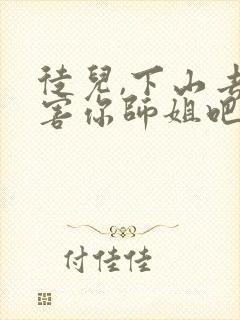 徒兒,下山去
害你師姐吧
付佳佳